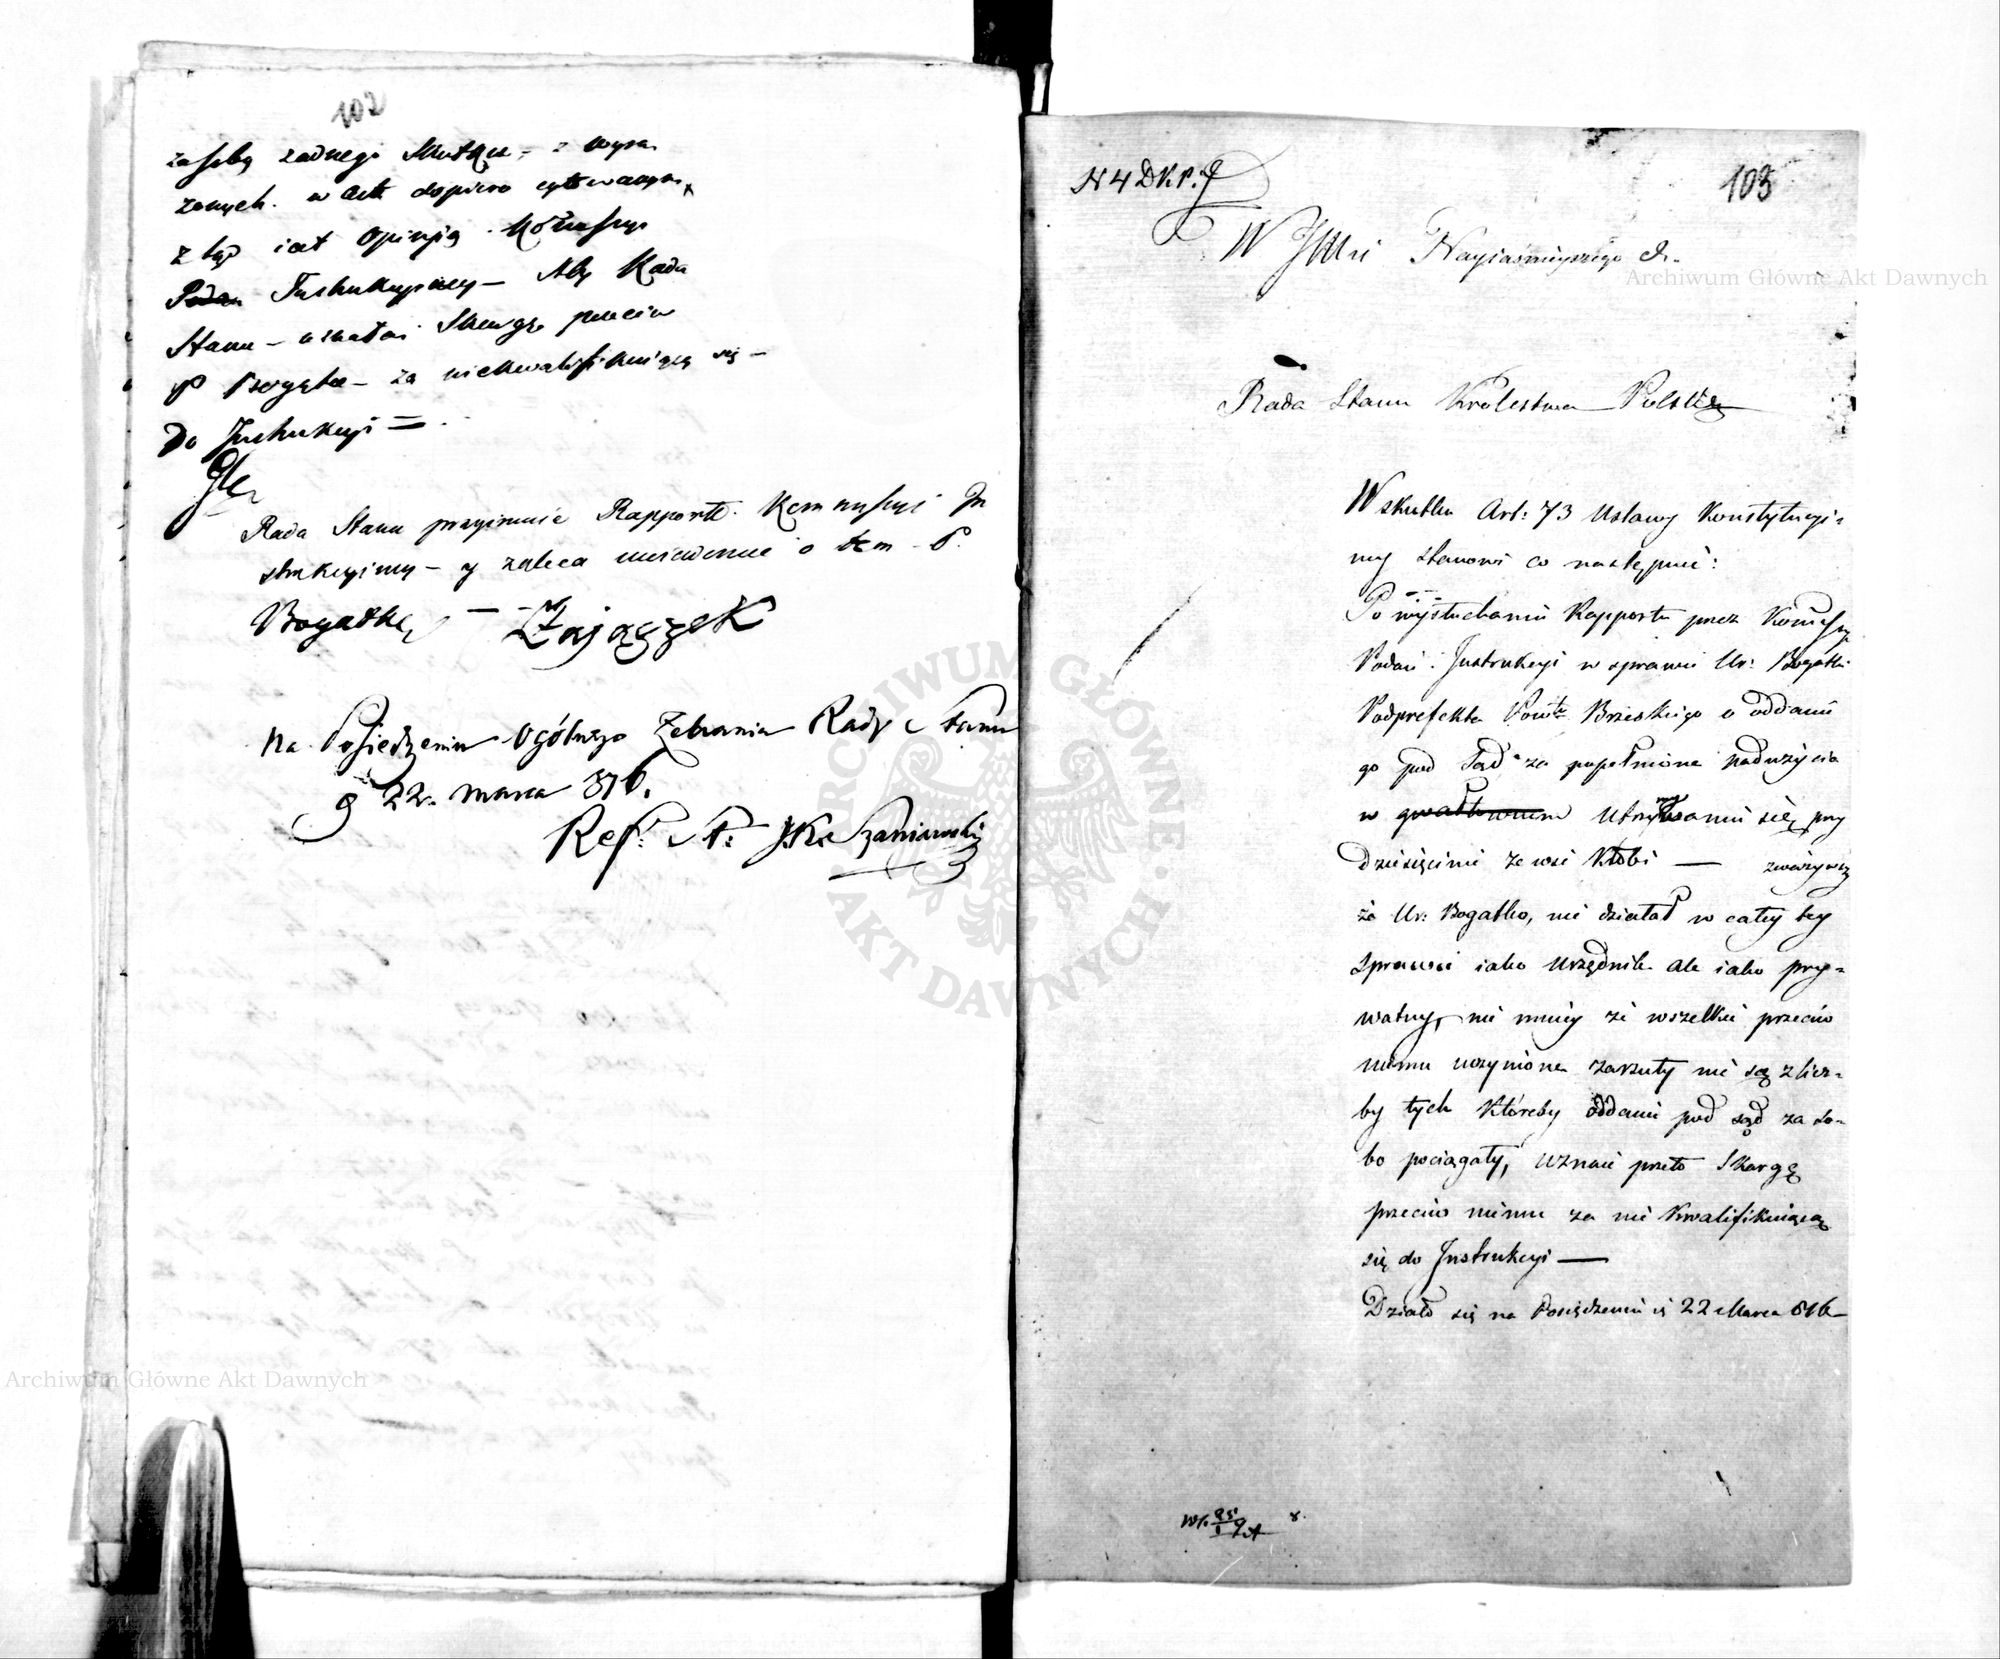 102
za sobą żadnego Skutku, z wyra
żonych w Art dopiero cytowanym
z tąd iest Opinją Kommissyi
Podan Instrukcyiney – Aby Rada
Stanu – uznała Skargę przeciw
P Bogatce – za niekwalifikuiącą się –
Do Instrukcyi =
Rada Stanu przyimuie Rapport Kommissyi In
strukcyiney – y zaleca uwiadomie o tem P.
Bogatkę – Zajączek
Na Posiedzeniu Ogólnego Zebrania Rady Stanu
d 22. marca 816.
Ref. St: J.K. Szaniawski
103
N 4 D.K.P.
W Imie Nayiaśnieyszego &.
Rada Stanu Królestwa Polskie
W skutku Art: 73 Ustawy Konstytucyi=
ney stanowi co następuie:
Po wysłuchaniu Rapportu przez Kommissyę
Podań i Instrukcyi w sprawie Ur: Bogatki
Podprefekta Powtu Brzeskiego o oddanie
go pod Sąd za popełnione nadużycia
w gwałtownem utrzymaniu się przy
dziesięcinie ze wsi Kłobi — zważywszy
że Ur: Bogatko, nie działał w całey tey
sprawie iako Urzędnik ale iako pry=
watny, nie mniey że wszelkie przeciw
niemu uczynione zarzuty nie są z licz=
by tych któreby oddanie pod sąd za so=
bo pociągały, uznaie przeto Skargę
przeciw niemu za nie kwalifikuiącą
się do Instrukcyi —
Działo się na Posiedzeniu d 22 Marca 816
Archiwum Główne Akt Dawnych
ARCHIWUM GŁÓWNE AKT DAWNYCH
Archiwum Główne Akt Dawnych